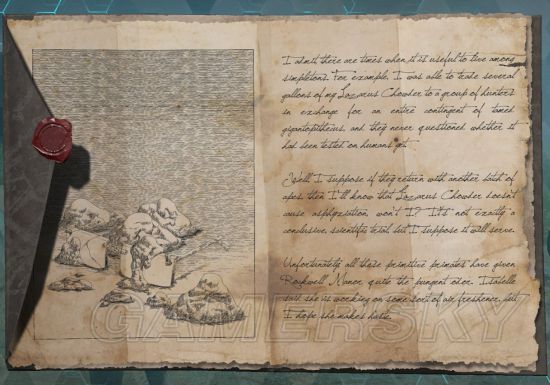 I admit there are times when it is useful to live among
simpletons. For example, I was able to trade several
gallons of my Lazarus Chowder to a group of hunters
in exchange for an entire contingent of tamed
gigantopithecus, and they never questioned whether it
had been tested on humans yet.
Well I suppose if they return with another batch of
apes, then I'll know that Lazarus Chowder doesn't
cause asphyxiation won't I? It's not exactly a
conclusive scientific trial but I suppose it will serve.
Unfortunately all these primitive primates have given
Rockwell Manor quite the pungent odor. Isabelle
said she is working on some sort of air freshener, but
I hope she makes haste.
GAMERSKY